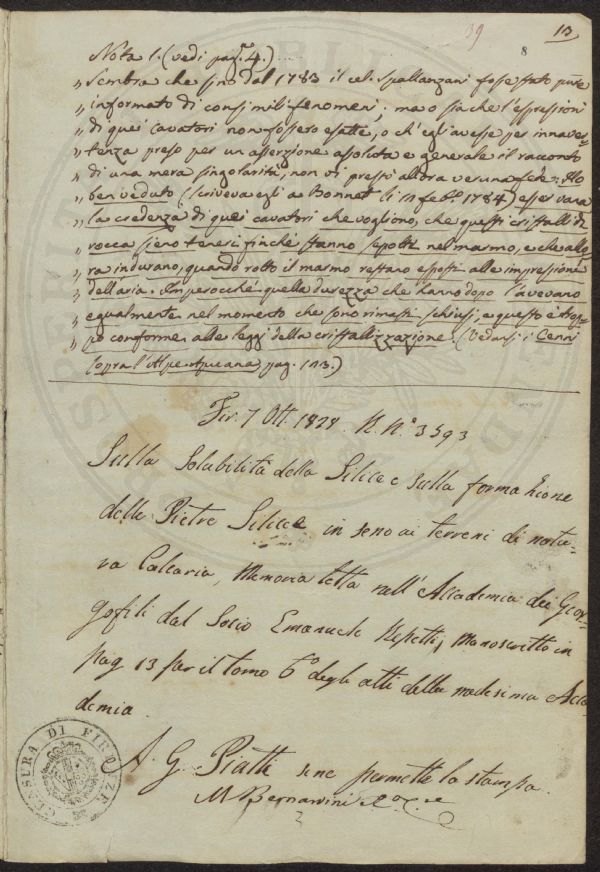 39
8
113
Nota 1. (vedi pag.e 4.)
„ Sembra che sino dal 1783 il cel. Spallanzani fosse stato pure
„ informato di consimili fenomeni; ma o sia che l'espressioni
„ di quei cavatori non fossero esatte, o ch'egli avesse per innaver-
„ tenza preso per un asserzione assoluta e generale il racconto
„ di una mera singolarità, non vi prestò allora veruna fede: Ho
„ ben veduto (scriveva egli a Bonnet li 11 feb.o 1784) esser vana
„ la credenza di quei cavatori che vogliono, che questi cristalli di
„ rocca sieno teneri finchè stanno sepolti nel marmo, e che allo
„ ra indurano, quando rotto il marmo restano esposti alle impressioni
„ dell'aria. Imperocchè quella durezza che hanno dopo l'avevano
„ egualmente nel momento che sono rimasti schiusi, e questo è trop-
„ po conforme alle leggi della cristallizzazione. (Vedansi i Cenni
sopra l'Alpe Apuana pag. 113.)
Fir. 7 Ott. 1828. R. N.o 3593
Sulla Solubilità della Silice e sulla formazione
delle Pietre Silicee in seno ai terreni di natu-
ra Calcaria, Memoria letta nell'Accademia dei Geor-
gofili dal Socio Emanuele Repetti, manoscritto in
pag 13 per il tomo 6o degli atti della medesima Acca-
demia.
A. G. Piatti se ne permette la stampa.
M Bernardini
CENSURA DI FIRENZE